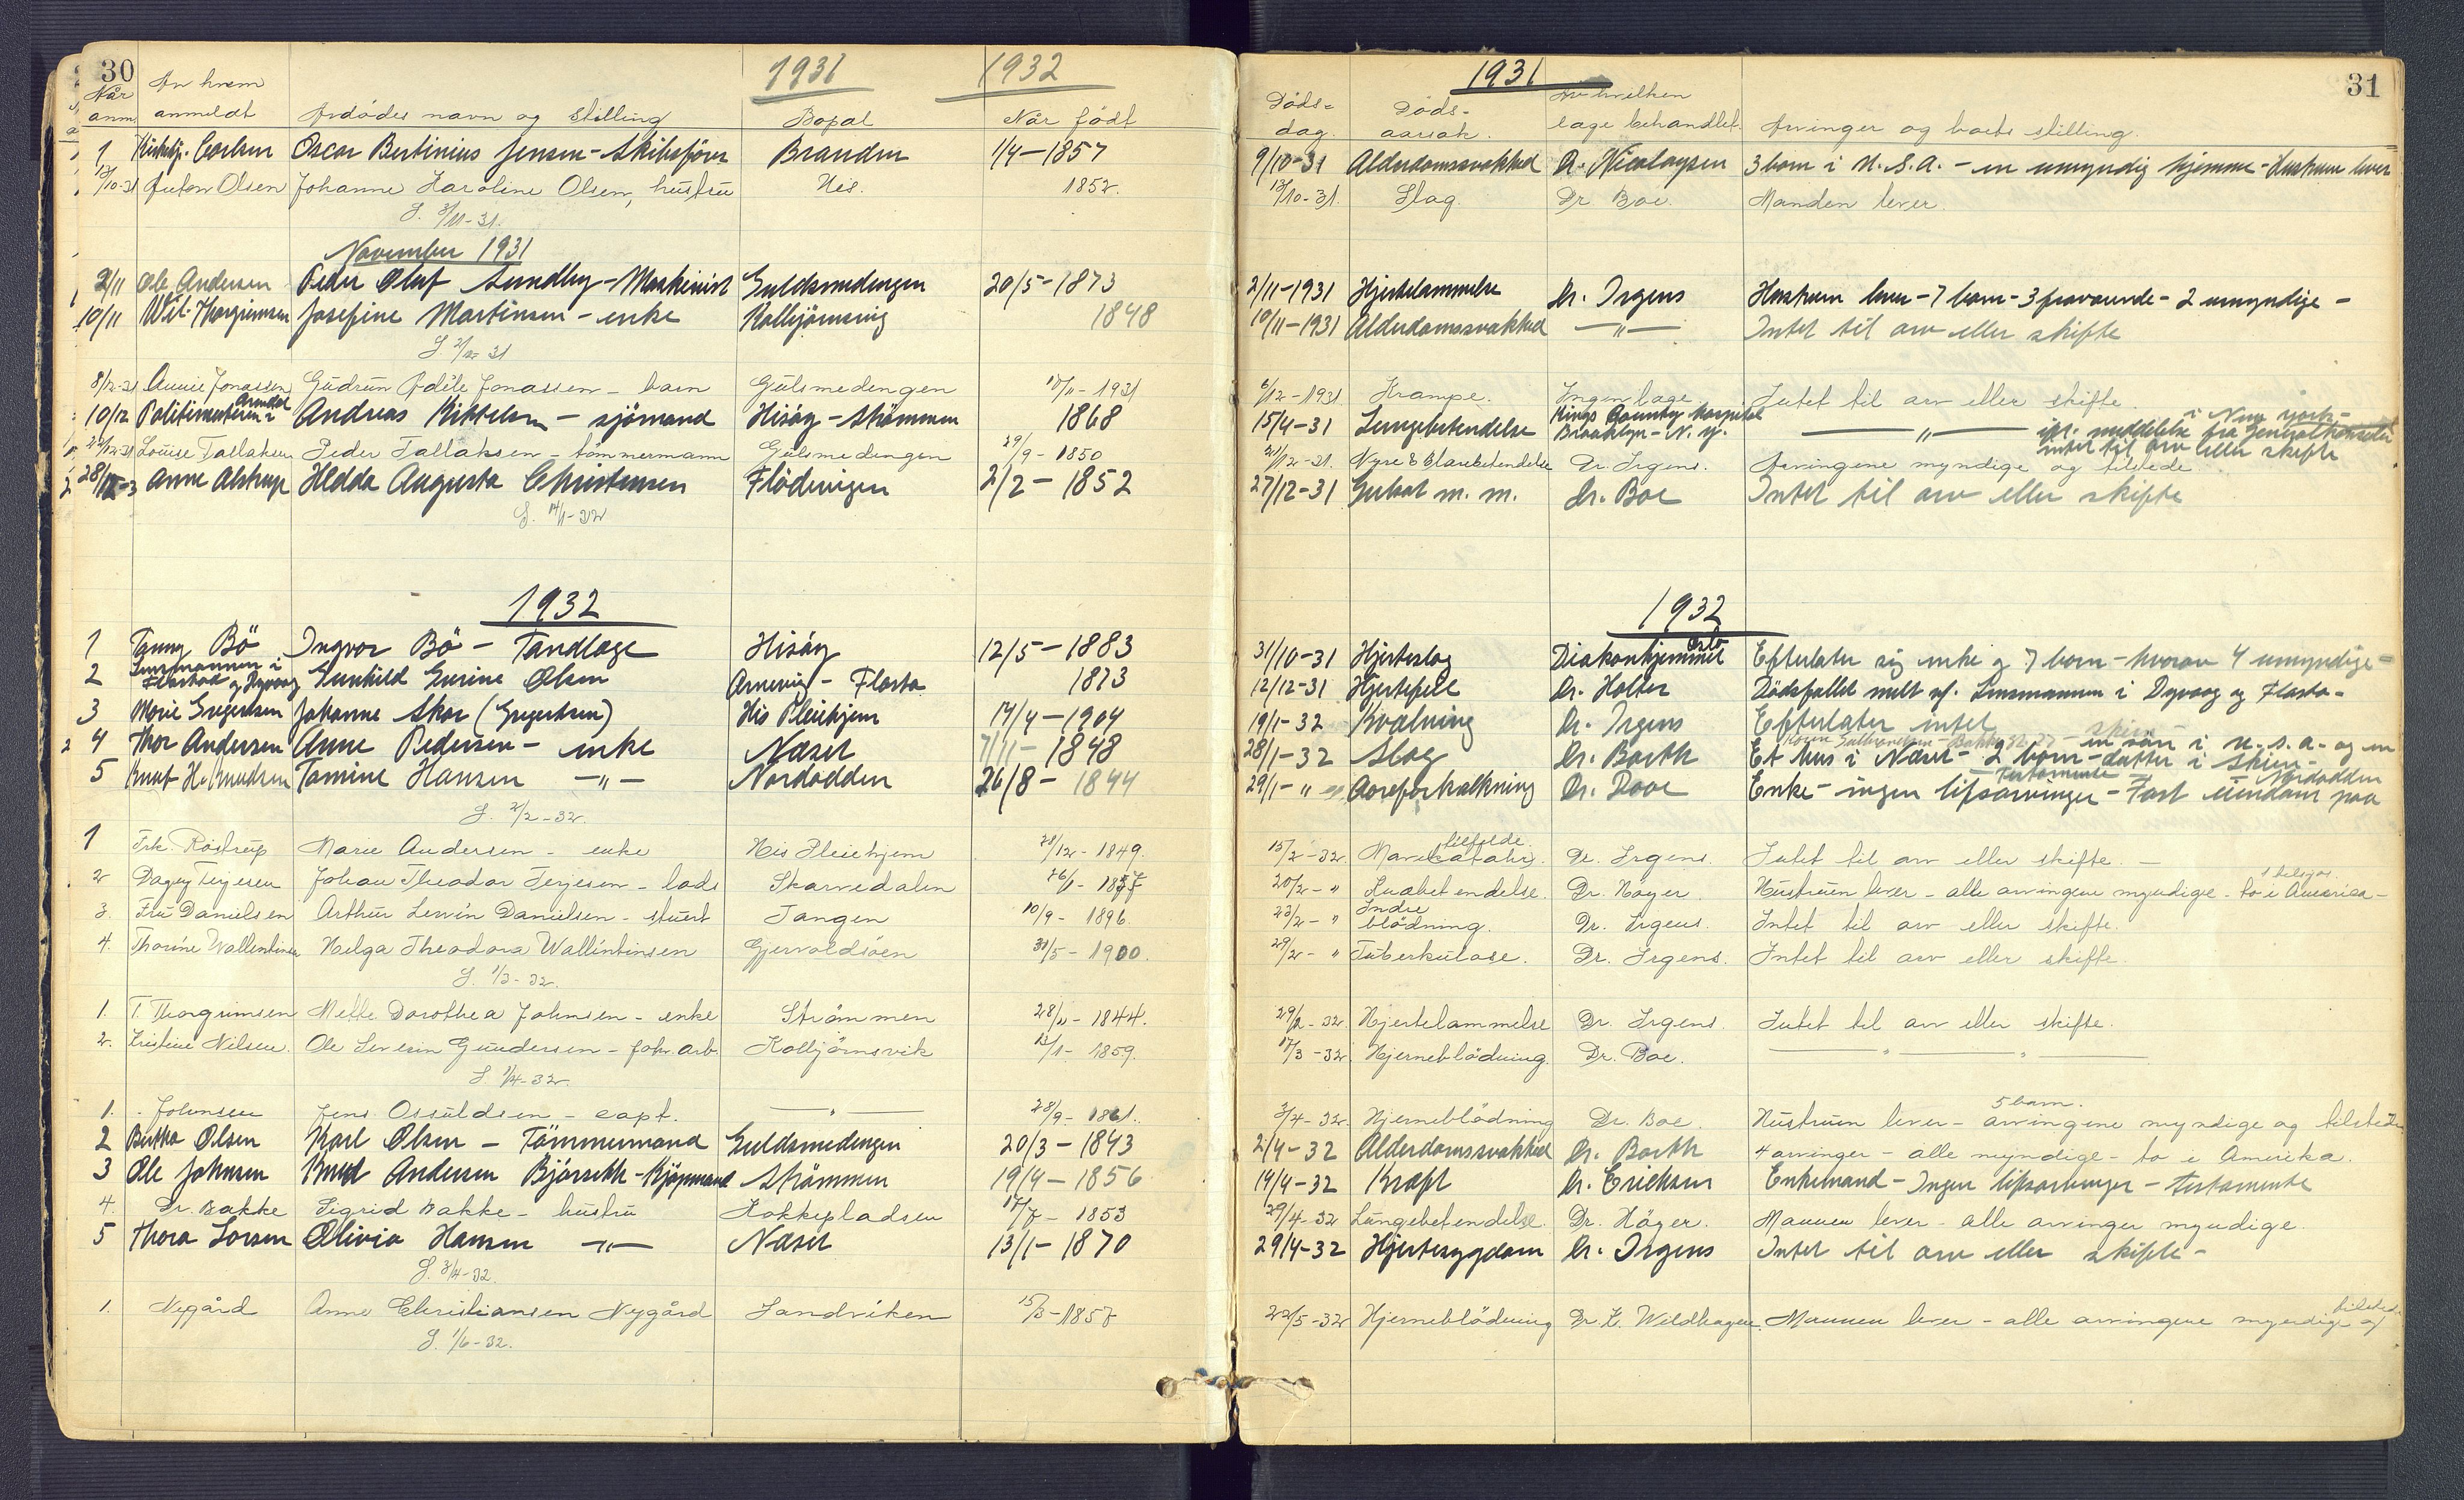 30 1931 1932
Når anm. Av hvem anmeldt Avdødes navn og stilling Bopæl Når født
1 Kirketj. Carlsen Oscar Bertinius Jensen - Skibsfører Branden 1/4-1857
13/10-31 Anton Olsen Johanne Karoline Olsen, hustru His. 1852.
S. 3/11-31.
November 1931
2/11 Ole Andersen Peder Oluf Sundby - Maskinist Guldsmedengen 20/5-1873
10/11 Wil. Thorgrimsen Josefine Martinsen - enke Kolbjørnsvig 1848
S 2/12 31
8/12-31 Annie Jonassen Gudrun Adèle Jonassen - barn Gulsmedengen 1931
10/12 Politimesteren i Arendal Andreas Kittelsen - sjömand Hisöy - Strömmen 1868
Louise Tallaksen Peder Tallaksen - tömmermann Gulsmedengen 29/9 - 1850
28/12-3 Anne Alstrup Hedda Augusta Christensen Flödevigen 2/2 - 1852
S. 14/1-32
1932
1 Fanny Bö Ingvor Bö - Tandlæge Hisöy 12/5-1883
2 Lensmannen i Flostad og Dypvaag Gunhild Gurine Olsen Arnevig - Flosta 1873
3 Marie Gregertsen Johanne Skor (Gregertsen) His Pleiehjem 14/4-1904
4 Thor Andersen Anne Pedersen - enke Næset 7/11- 1848
5 Knut H. Knudsen Tomine Hansen -"- Nordodden 26/8 - 1844
S. 2/2-32.
1 Frk. Röstrup Marie Andersen - enke His Pleiehjem 28/12-1849.
2 Dagny Terjesen Johan Theodor Terjesen - lods Skarvedalen
3. Fru Danielsen Arthur Lervin Danielsen - stuert Tangen 10/9 - 1896.
4. Thorine Wallentinsen Helga Theodora Wallintinsen Gjervoldsöen 31/5 - 1900.
S. 1/3-32.
1. T. Thorgrimsen Mette Dorothea Johnsen - enke Strömmen 28/11 - 1844.
2. Kristine Nilsen. Ole Severin Gundersen - forh. arb. Kolbjörnsvik 1859.
S. 1/4-32.
1. Johnsen Jens Osuldsen - capt. -"- 28/9-1861.
2 Bertha Olsen Karl Olsen - Tömmermand Guldsmedengen 20/3-1843
3 Ole Johnsen Knud Andersen Bjørsvik - Kjöpmand Strömmen 19/4-1856
4. Dr. Bakke Sigrid Bakke - hustru Kokkepladsen 17/7 - 1853
5 Thora Larsen Olivia Hansen -"- Næset 13/1-1870
S. 3/4-32.
1. Nygård Anne Christiansen Nygård Sandviken
S. 1/6-32.
1931 31
Dödsdag. Dödsaarsak. Av hvilken læge behandlet. Arvinger og boets stilling.
9/10-31 Alderdomssvakhed Dr. Nicolaysen 3 barn i U.S.A. - en umyndig hjemme - Hustruen lever
13/10-31. Slag. Dr Boe. Manden lever.
2/11-1931 Hjertelammelse Dr. Irgens Hustruen lever - 7 barn - 3 fraværende - 2 umyndige -
10/11-1931 Alderdomssvakhed -"- Intet til arv eller skifte
6/12-1931 Krampe. Ingen læge Intet til arv eller skifte.
15/4-31 Lungebetendelse Kings County Hospital Brooklyn - N.y. -"- ifr. meddelelse fra Generalkonsulen i New york - intet til arv eller skifte
21/12-31. Nyre & blærebetendelse Dr. Irgens. Arvingene myndige og tilstede.
27/12-31 Gulsot m. m. Dr. Boe Intet til arv eller skifte
1932
31/10-31 Hjerteslag Diakonhjemmet Oslo Efterlater sig enke og 7 barn - hvorav 4 umyndige -
12/12-31 Hjertefeil Dr. Holter Dödsfallet meldt af. Lensmannen i Dypvaag og Flosta -
19/1-32 Kvælning Dr. Irgens Efterlater intet
28/1-32 Slag Dr. Barth Et hus i Næset - 2 barn - datter i Skien - en sön i U.S.A. - og en
29/1-" Aareforkalkning Dr. Dooe Enke - ingen livsarvinger - Testamente - Fast eiendom paa Nordodden
15/2-32. Mavekatahr. tilfelde Dr. Irgens. Intet til arv eller skifte. -
20/2-" betendelse. Dr. Höyer. Hustruen lever - alle arvingene myndige - to i America -
23/2-" Indre blödning. Dr. Irgens. Intet til arv eller skifte.
29/2-" Tuberkulose. Dr. Irgens. Intet til arv eller skifte.
29/2-32. Hjertelammelse Dr. Irgens. Intet til arv eller skifte.
17/3-32. Hjerneblödning. Dr. Boe. -"-
3/4-32. Hjerneblödning Dr. Boe. Hustruen lever - 5 barn. arvingene myndige og tilstede.
2/4-32 Alderdomssvakhed Dr. Barth 4 arvinger - alle myndige - to i Amerika.
14/4-32 Kræft Dr. Ericksen Enkemand - Ingen livsarvinger - testamente
29/4-32 Lungebetendelse. Dr. Höyer. Mannen lever - alle arvinger myndige.
29/4-32 Hjertesygdom Dr. Irgens Intet til arv eller skifte -
22/5-32 Hjerneblödning Dr. K. Wildhagen. Mannen lever - alle arvingene myndige og tilstede